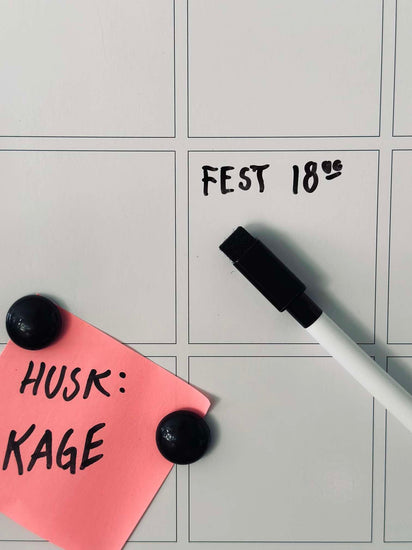 FEST 18⁰⁰
HUSK:
KAGE